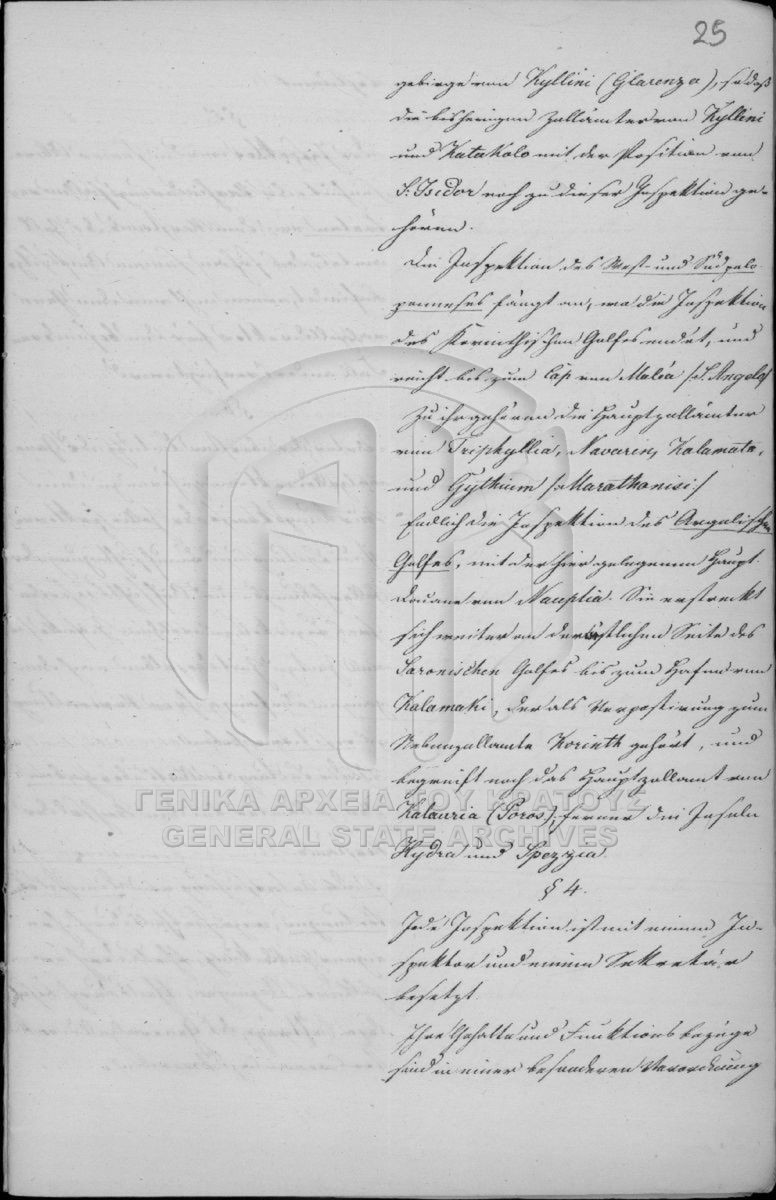 25
gebirge von Kyllini (Glarenza), so daß
die bisherigen Zollämter von Kyllini
und Katakolo mit der Position von
S: Isidor noch zu dieser Inspektion ge-
hören.
Die Inspektion des West- und Südpelo-
ponneses fängt an, wo die Inspektion
des Korinthischen Golfes endet, und
reicht bis zum Cap von Malea /S. Angelo/
Zu ihr gehören die Hauptzollämter
von Triphyllia, Navarin, Kalamata,
und Gythium /:Marathonisi:/
Endlich die Inspektion des Argolischen
Golfes, mit der hier gelegenen Haupt-
Douane von Nauplia. Sie erstreckt
sich weiter an der östlichen Seite des
Saronischen Golfes bis zum Hafen von
Kalamaki, der als Vorpostirung zum
Nebenzollamte Korinth gehört, und
begreift noch das Hauptzollamt von
Kalauria (Poros), ferner die Inseln
Hydra und Spezzia.
§ 4.
Jede Inspektion ist mit einem In-
spektor und einem Sekretär
besetzt.
Ihre Gehalte und Funktionsbezüge
sind in einer besonderen Verordnung
ΓΕΝΙΚΑ ΑΡΧΕΙΑ ΤΟΥ ΚΡΑΤΟΥΣ
GENERAL STATE ARCHIVES